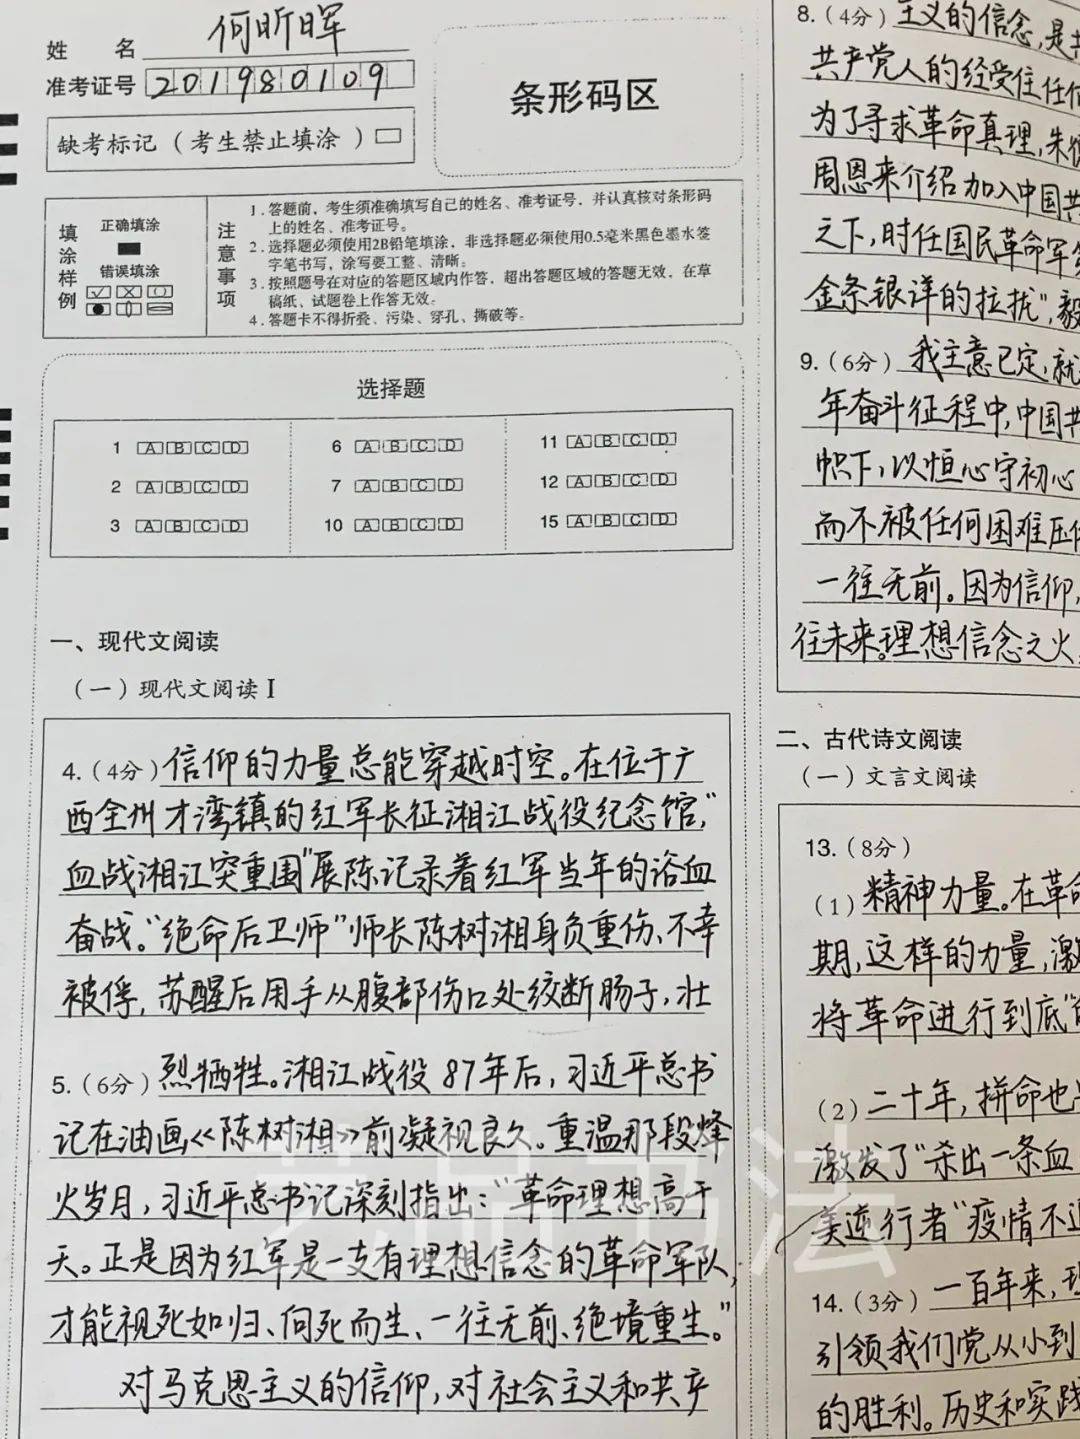 姓 名 何昕晖
准考证号 201980109
缺考标记（考生禁止填涂）
条形码区
填涂样例
正确填涂
错误填涂
注意事项
1.答题前，考生须准确填写自己的姓名、准考证号，并认真核对条形码
上的姓名、准考证号。
2.选择题必须使用2B铅笔填涂，非选择题必须使用0.5毫米黑色墨水签
字笔书写，涂写要工整、清晰。
3.按照题号在对应的答题区域内作答，超出答题区域的答题无效，在草
稿纸、试题卷上作答无效。
4.答题卡不得折叠、污染、穿孔、撕破等。
选择题
1 A B C D 6 A B C D 11 A B C D
2 A B C D 7 A B C D 12 A B C D
3 A B C D 10 A B C D 15 A B C D
一、现代文阅读
（一）现代文阅读Ⅰ
4.（4分）信仰的力量总能穿越时空。在位于广
西全州才湾镇的红军长征湘江战役纪念馆，"
血战湘江突重围"展陈记录着红军当年的浴血
奋战。"绝命后卫师"师长陈树湘身负重伤、不幸
被俘，苏醒后用手从腹部伤口处绞断肠子，壮
5.（6分）烈牺牲。湘江战役87年后，习近平总书
记在油画《陈树湘》前凝视良久。重温那段烽
火岁月，习近平总书记深刻指出："革命理想高于
天。正是因为红军是一支有理想信念的革命军队，
才能视死如归、向死而生、一往无前、绝境重生。"
对马克思主义的信仰，对社会主义和共产
8.（4分）主义的信念，是
共产党人的经受住任
为了寻求革命真理，朱
周恩来介绍加入中国共
之下，时任国民革命军
金条银洋的拉拢"，毅
9.（6分）我主意已定，就
年奋斗征程中，中国共
帜下，以恒心守初心
而不被任何困难压
一往无前。因为信仰，
往未来。理想信念之火，
二、古代诗文阅读
（一）文言文阅读
13.（8分）
（1）精神力量。在革命
期，这样的力量，激
将革命进行到底"
（2）二十年，拼命也
激发了"杀出一条血
美逆行者"疫情不
14.（3分）一百年来，理
引领我们党从小到
的胜利。历史和实践
书法